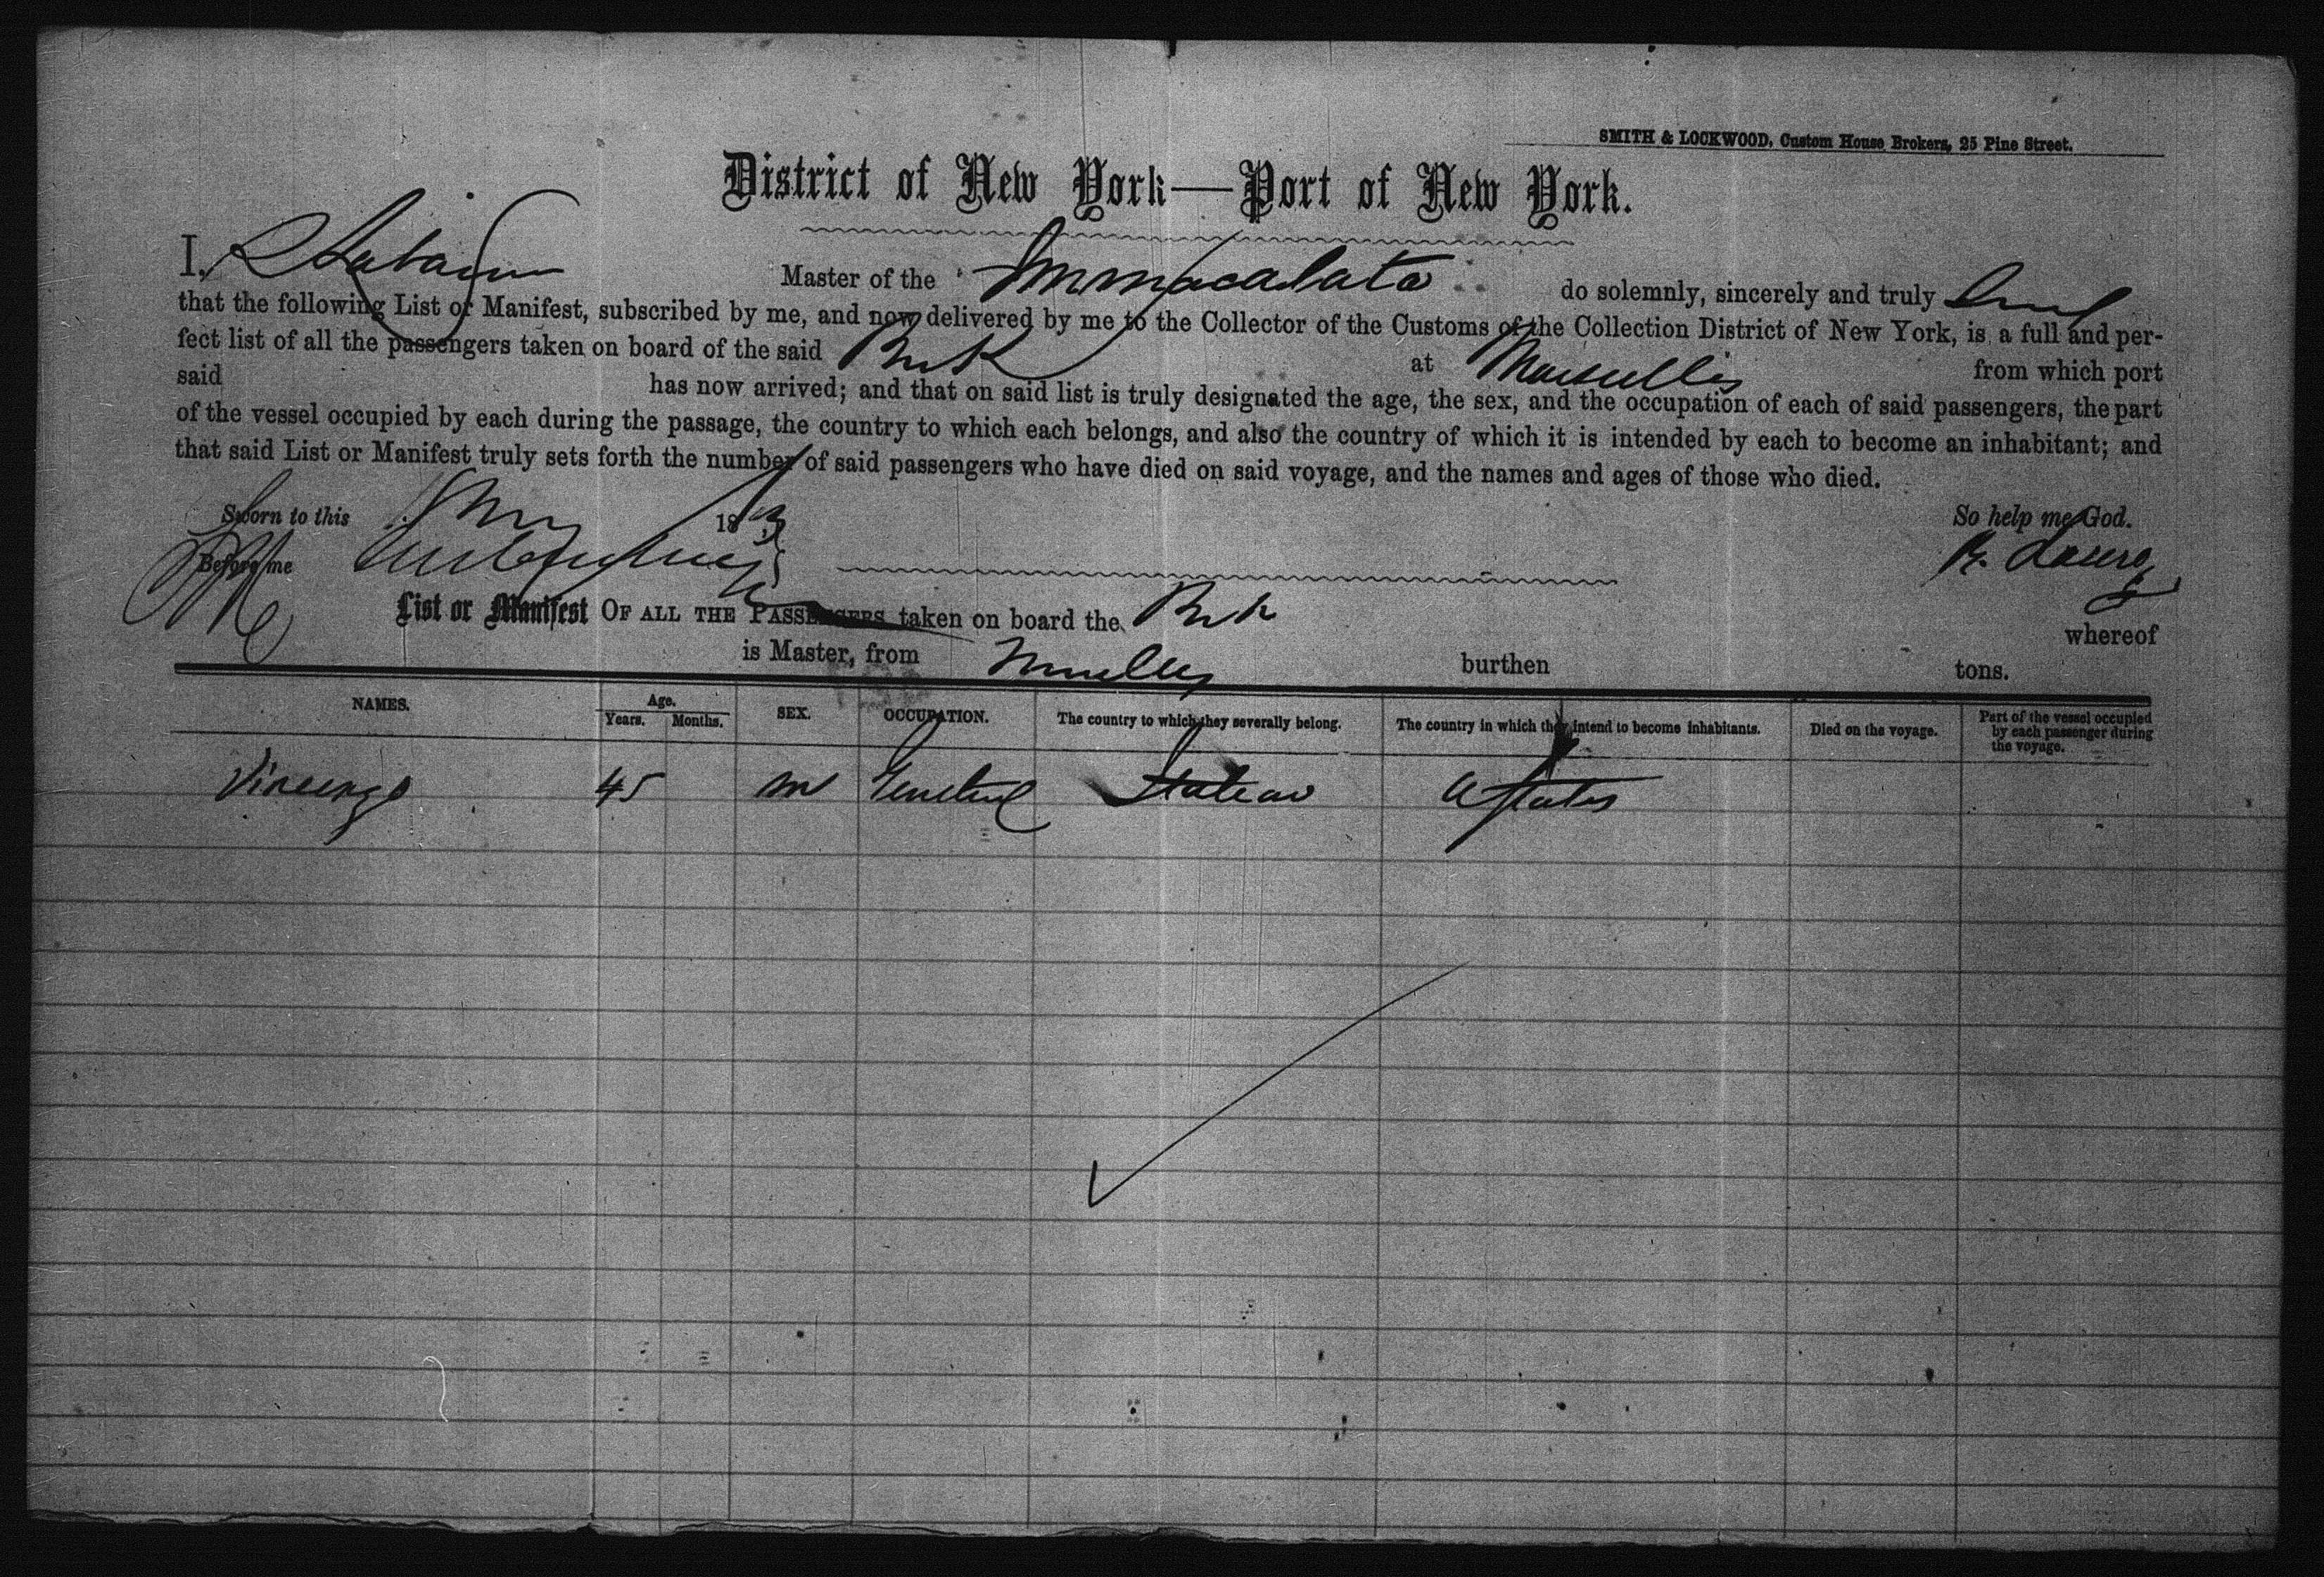 SMITH & LOCKWOOD, Custom House Brokers, 25 Pine Street.
District of New York—Port of New York.
I, Master of the Immacalata do solemnly, sincerely and truly
that the following List or Manifest, subscribed by me, and now delivered by me to the Collector of the Customs of the Collection District of New York, is a full and per-
fect list of all the passengers taken on board of the said Bark at Marseilles from which port
said has now arrived; and that on said list is truly designated the age, the sex, and the occupation of each of said passengers, the part
of the vessel occupied by each during the passage, the country to which each belongs, and also the country of which it is intended by each to become an inhabitant; and
that said List or Manifest truly sets forth the number of said passengers who have died on said voyage, and the names and ages of those who died.
Sworn to this 18 So help me God.
Before me
List or Manifest OF ALL THE PASSENGERS taken on board the Bark whereof
is Master, from burthen tons.
NAMES. Age. Years. Months. SEX. OCCUPATION. The country to which they severally belong. The country in which they intend to become inhabitants. Died on the voyage. Part of the vessel occupied by each passenger during the voyage.
Vincenzo 45 m